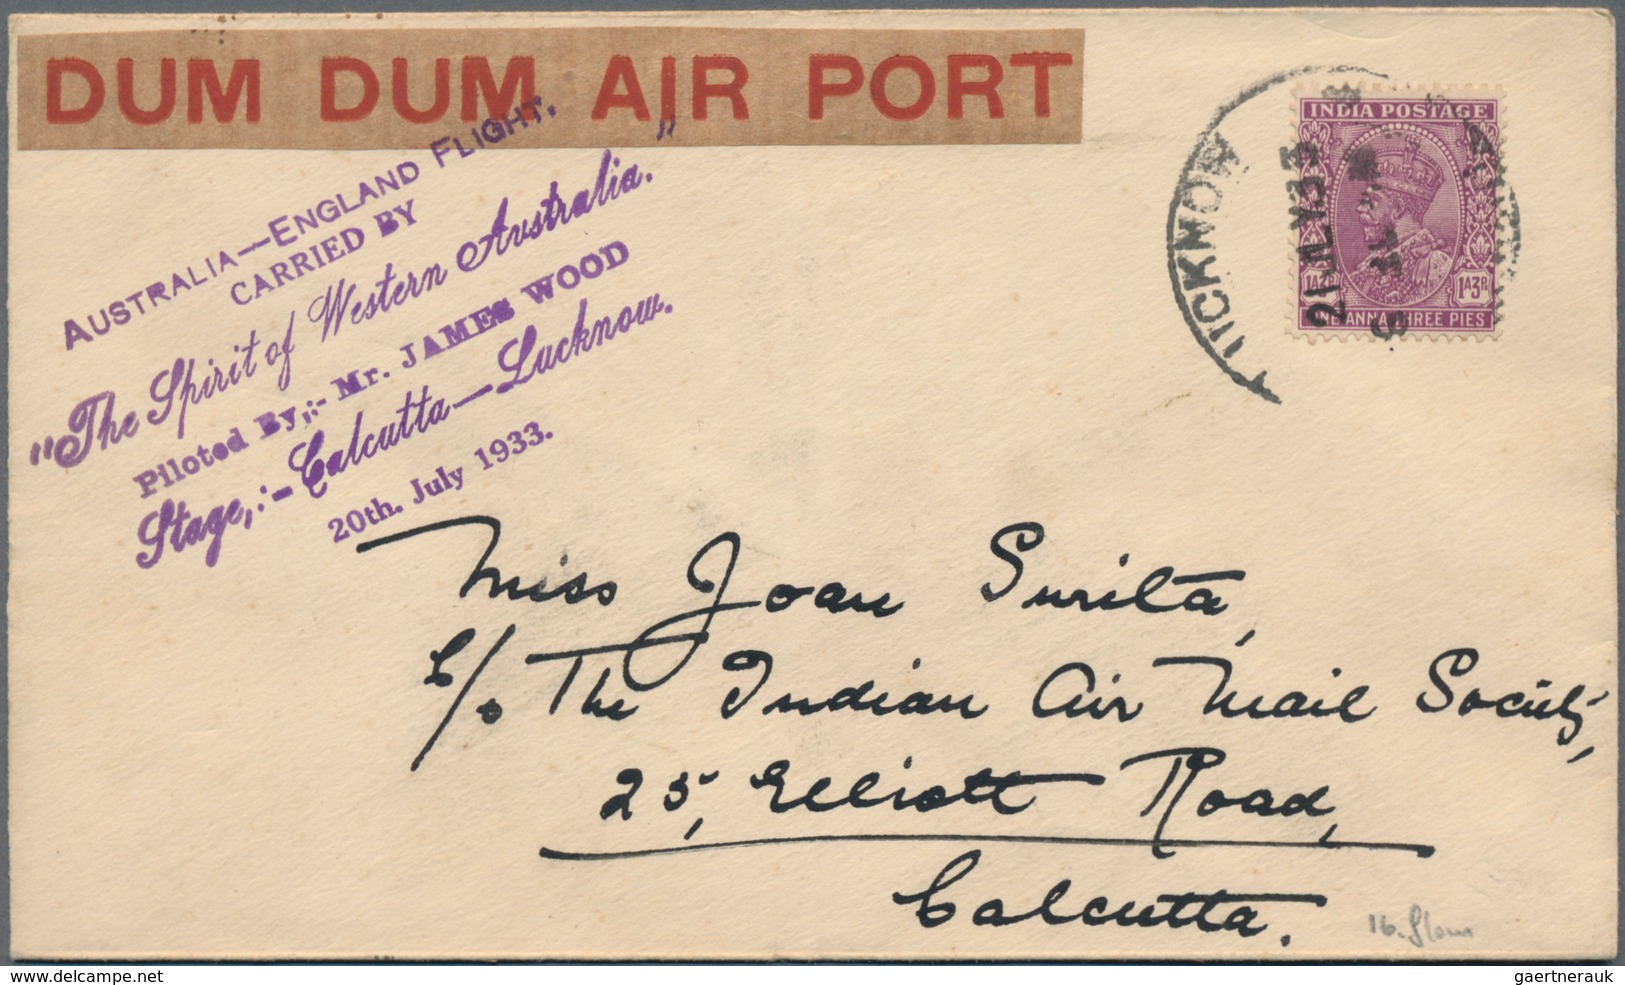 DUM DUM AIR PORT
AUSTRALIA—ENGLAND FLIGHT.
CARRIED BY
"The Spirit of Western Australia."
Piloted By,:- Mr. JAMES WOOD
Stage,:- Calcutta—Lucknow.
20th. July 1933.
LUCKNOW
21 JLY 33
INDIA POSTAGE
1A3P
1A3P
ONE ANNA THREE PIES
Miss Joan Surita,
C/o The Indian Air Mail Society,
25, Elliott Road,
Calcutta.
delcampe.net
gaertnerauk